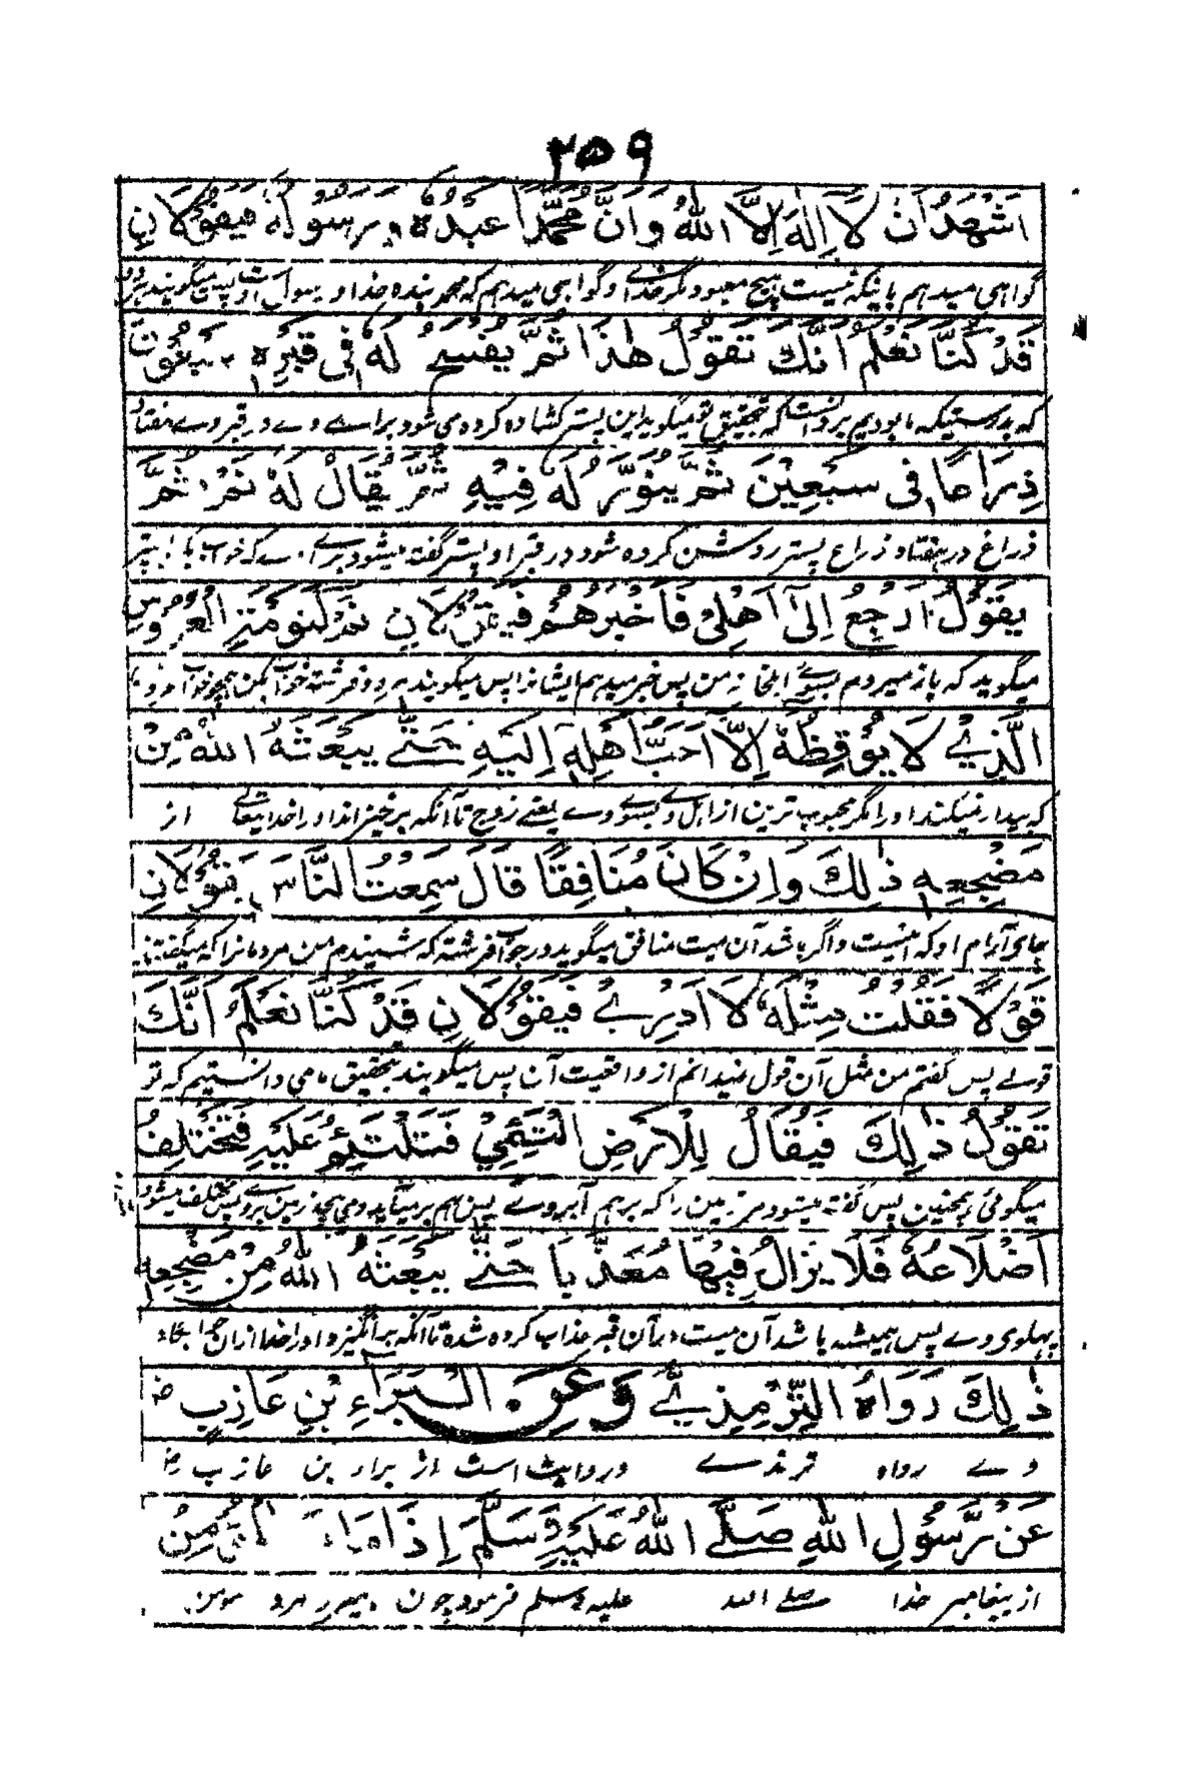 ۲۵۹
اَشْهَدُ اَنْ لَّا اِلٰهَ اِلَّا اللّٰهُ وَاَنَّ مُحَمَّدًا عَبْدُهٗ وَرَسُولُهٗ فَيَقُوْلَانِ
گواهی میدهم باینکه نیست هیچ معبود مگر خدای و گواهی میدهم که محمد بنده خدا و رسول اوست پس میگویند
قَدْ كُنَّا نَعْلَمُ اَنَّكَ تَقُوْلُ هٰذَا ثُمَّ يُفْسَحُ لَهٗ فِي قَبْرِهٖ سَبْعُوْنَ
که بدرستیکه ما بودیم که تحقیق تو میگوید این پستر کشاده کرده می شود برای وے در قبر وے هفتاد
ذِرَاعًا فِي سَبْعِيْنَ ثُمَّ يُنَوَّرُ لَهٗ فِيْهِ ثُمَّ يُقَالُ لَهٗ نَمْ ثُمَّ
ذراع در هفتاد ذراع پستر روشن کرده شود در قبر او پستر گفته میشود که خواب
يَقُوْلُ اَرْجِعُ اِلٰى اَهْلِيْ فَاُخْبِرُهُمْ فَيَقُوْلَانِ نَمْ كَنَوْمَةِ الْعَرُوْسِ
میگوید که باز میروم بسوے اهل خانه من پس خبر میدهم ایشانرا پس میگویند هر دو فرشته خواب کن همچو خواب
الَّذِيْ لَا يُوْقِظُهٗ اِلَّا اَحَبُّ اَهْلِهٖ اِلَيْهِ حَتّٰى يَبْعَثَهُ اللّٰهُ مِنْ
که بیدار نمیکند او را مگر محبوب ترین از اهل وے بسوے وے یعنی زوج تا آنکه برخیزاند او را خدا تعالی از
مَضْجَعِهٖ ذٰلِكَ وَاِنْ كَانَ مُنَافِقًا قَالَ سَمِعْتُ النَّاسَ يَقُوْلُوْنَ
جای آرام او که اینست و اگر باشد آن میت منافق میگوید در جواب فرشته که شنیدم من مردمانرا که میگفتند
قَوْلًا فَقُلْتُ مِثْلَهٗ لَا اَدْرِيْ فَيَقُوْلَانِ قَدْ كُنَّا نَعْلَمُ اَنَّكَ
قولے پس گفتم من مثل آن قول نمیدانم از واقعیت آن پس میگویند تحقیق ما می دانستیم که تو
تَقُوْلُ ذٰلِكَ فَيُقَالُ لِلْاَرْضِ الْتَئِمِيْ فَتَلْتَئِمُ عَلَيْهِ فَتَخْتَلِفُ
میگوئی همچنین پس گفته میشود مر زمین را که برهم آ بر وے پس بهم بر میآید زمین بر وے پس مختلف میشود
اَضْلَاعُهٗ فَلَا يَزَالُ فِيْهَا مُعَذَّبًا حَتّٰى يَبْعَثَهُ اللّٰهُ مِنْ مَضْجَعِهٖ
پهلوی وے پس همیشه باشد آن میت در آن قبر عذاب کرده شده تا آنکه برانگیزد او را خدا ازان
ذٰلِكَ رَوَاهُ التِّرْمِذِيُّ وَعَنِ الْبَرَاءِ بْنِ عَازِبٍ رض
وے رواه ترمذے و روایت است از براء بن عازب رض
عَنْ رَّسُوْلِ اللّٰهِ صَلَّى اللّٰهُ عَلَيْهِ وَسَلَّمَ اِذَا مَاتَ الْمُؤْمِنُ
از پیغامبر خدا صلے الله علیه وسلم فرمود چون بمیرد مرد مومن